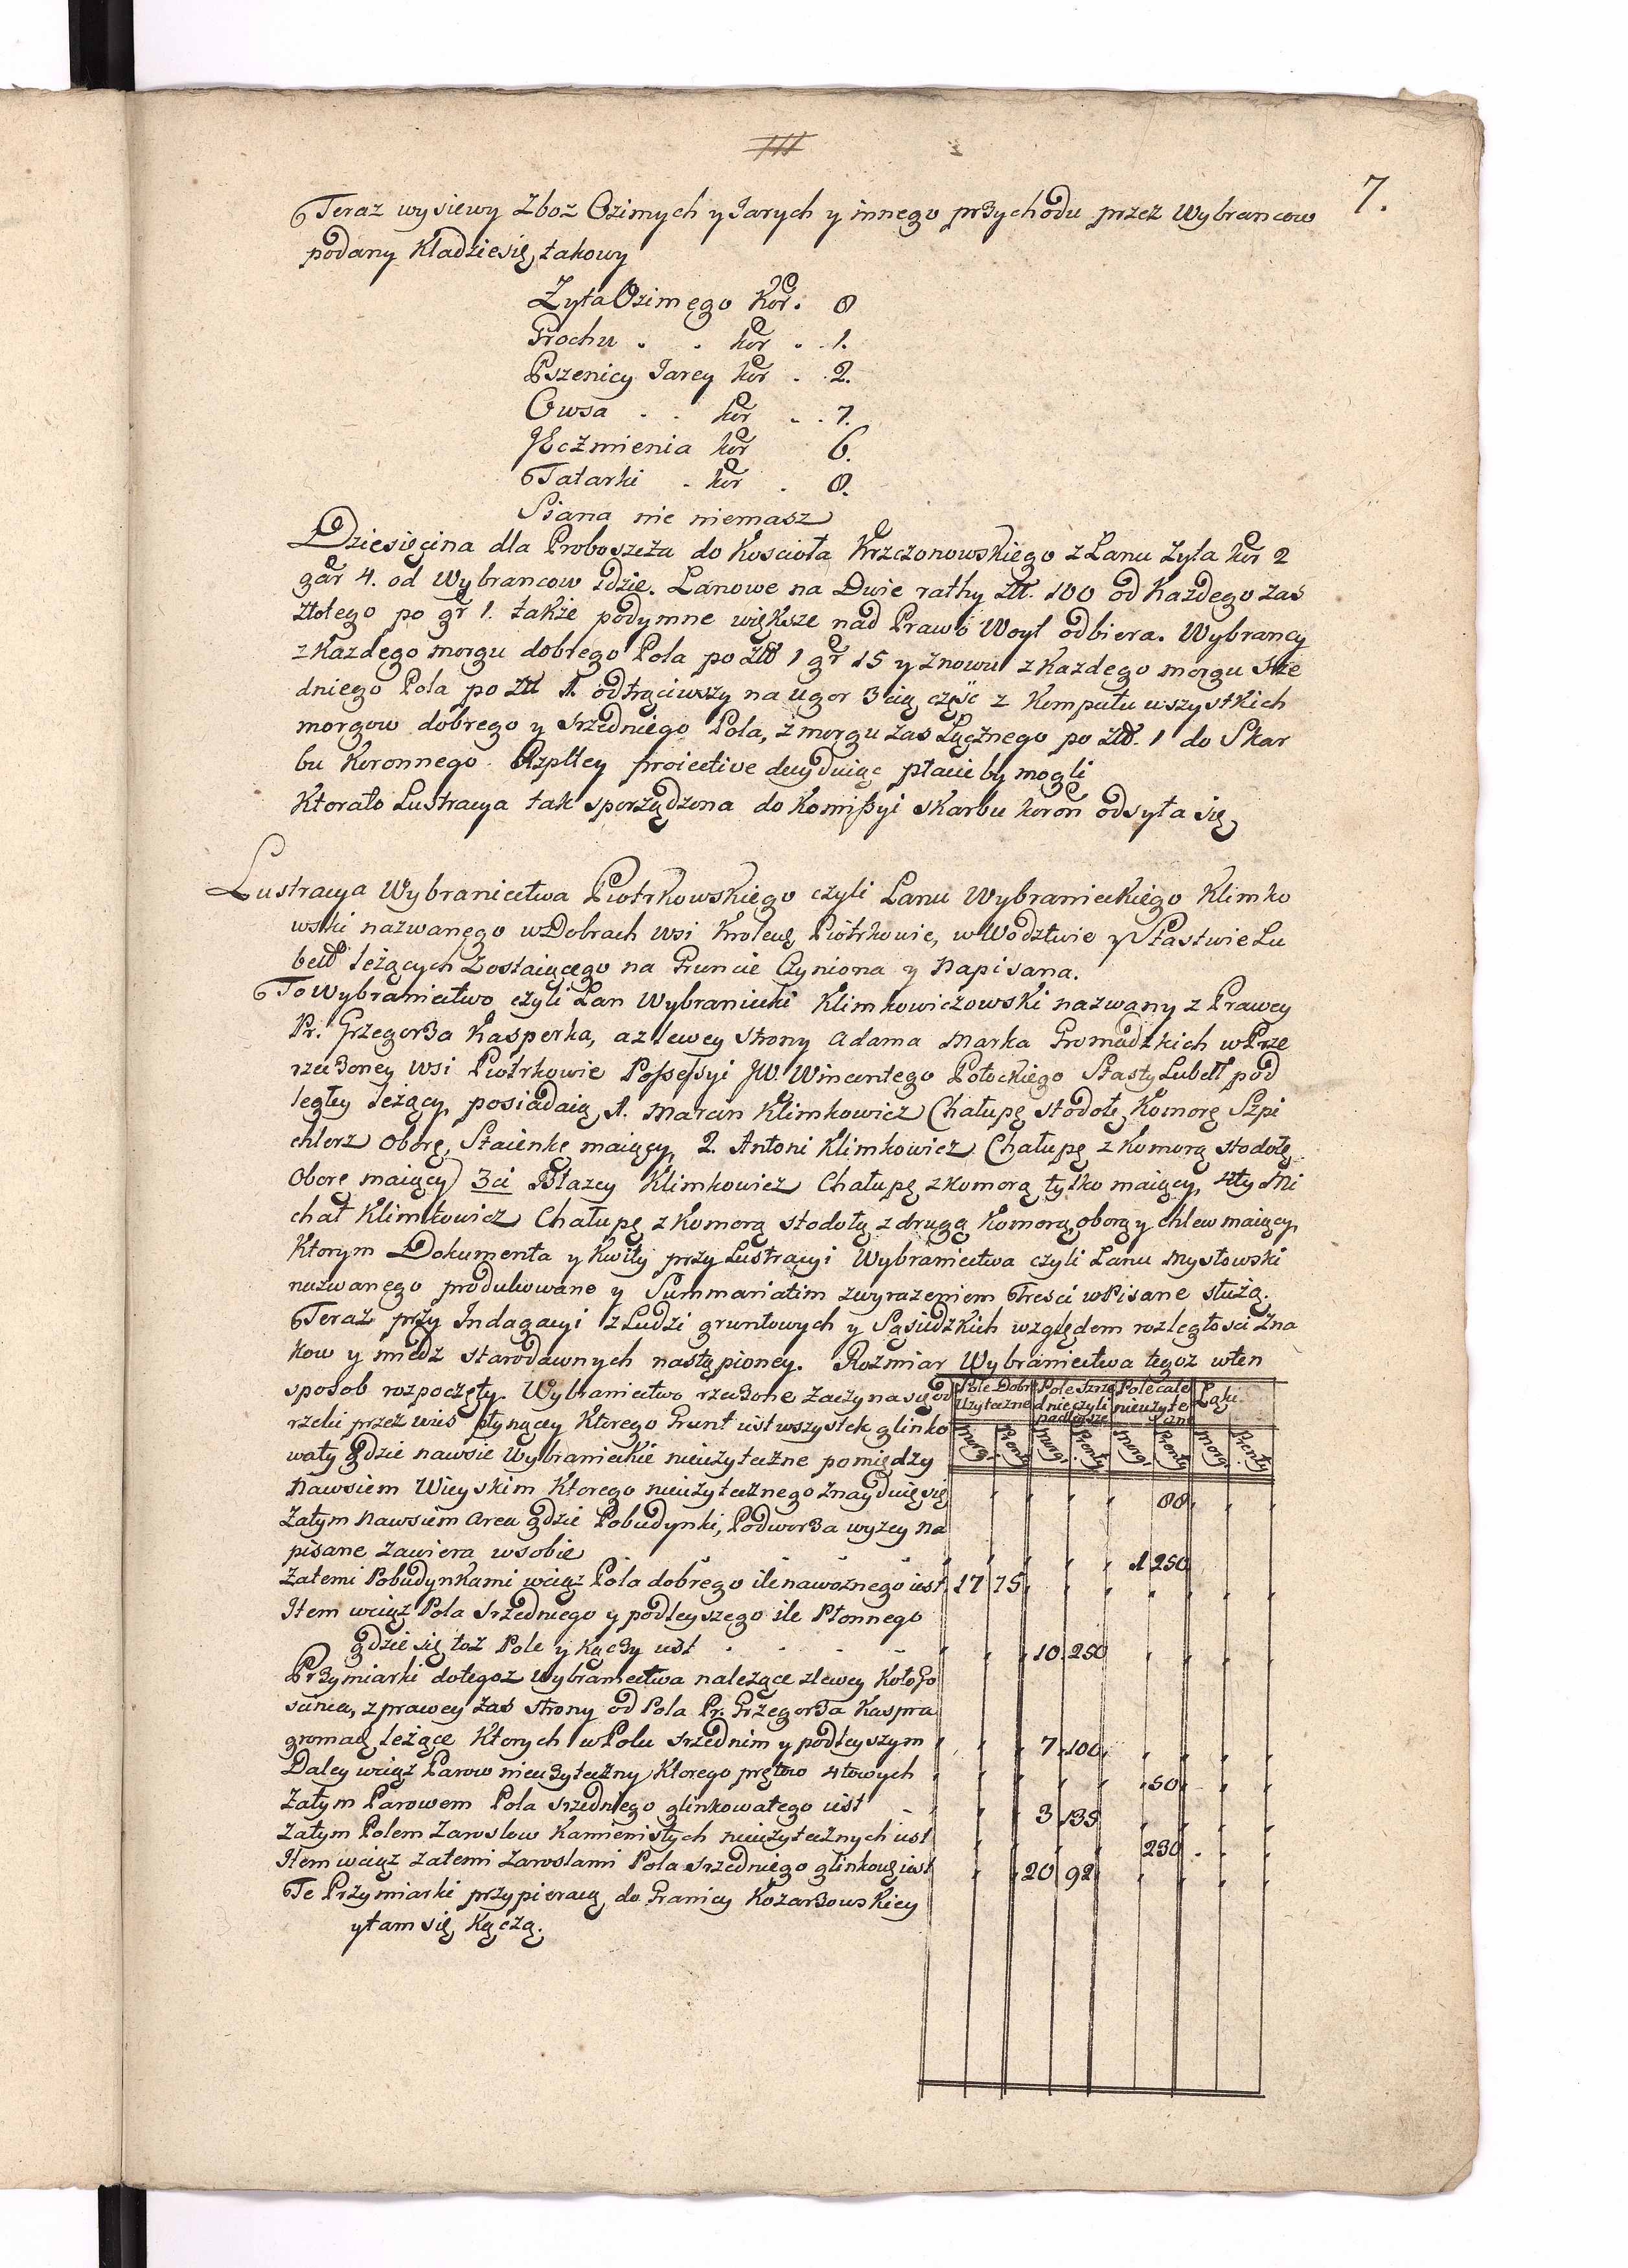 7.
Teraz wysiewy Zboz Ozimych y Jarych y innego przychodu przez Wybrancow
podany Kładzie się takowy
Zyta Ozimego Kor. 8
Grochu . . kor . . 1.
Pszenicy Jarey kor . . 2.
Owsa . . kor . . 7.
JEczmienia kor 6.
Tatarki . kor . 8.
Siana nic niemasz
Dziesięcina dla Proboszcza do Koscioła Krzczonowskiego z Lanu Zyta kor 2
gar 4. od Wybrancow idzie. Lanowe na Dwie rathy złł. 100 od Kazdego zas
złotego po gr 1. także podymne większe nad Prawo Woyt odbiera. Wybrancy
z Kazdego morgu dobrego Pola po Złł 1 gr 15 y znowu z kazdego morgu Srze
dniego Pola po Złł 1. odtrąciwszy na ugor 3cią część z Komputu wszystkich
morgow dobrego y srzedniego Pola, z morgu zas Łącznego po złł. 1 do Skar
bu Koronnego Rzpltey proiective decyduiąc płacić by mogli
Ktorato Lustracya tak sporządzona do Komissyi Skarbu koron odsyła się
Lustracya Wybranictwa Piotrkowskiego czyli Lanu Wybranieckiego Klimko
wski nazwanego w Dobrach wsi Krolew Piotrkowie, w Wodztwie y Stastwie Lu
bell leżących Zostaiącego na Gruncie Czyniona y Napisana.
To Wybranictwo czyli Łan Wybraniecki Klimkowiczowski nazwany z Prawey
Pr. Grzegorza Kasperka, a z lewey strony Adama Marka Gromadzkich w Prze
rzeczoney wsi Piotrkowie Possessyi JW. Wincentego Potockiego Stasty Lubell pod
legley leżący, posiadaią 1. Marcin Klimkowicz Chałupę stodołę Komorę Szpi
chlerz Oborę, Staienkę maiący, 2. Antoni Klimkowicz Chałupę z Komorą stodołę
Oborę maiący 3ci Błazey Klimkowicz Chałupę z komorą tylko maiący, 4ty Mi
chał Klimkowicz Chałupę z Komorą stodołą z drugą Komorą, oborą y chlew maiący,
Ktorym Dokumenta y Kwity przy Lustracyi Wybranictwa czyli Lanu Mysłowski
nazwanego produkowane y Summariatim z wyrazeniem Tresci wpisane służą.
Teraz przy Indagacyi z Ludzi gruntowych y Sąsiedzkich względem rozległosci Zna
kow y miedz starodawnych nastąpioney. Rozmiar Wybranictwa tegoz w ten
sposob rozpoczęty. Wybranictwo rzeczone zaczyna się od
rzeki przez wies płynącey Ktorego Grunt iest wszystek glinko
waty gdzie nawsie Wybranieckie nieużyteczne pomiędzy
Nawsiem Wieyskim Ktorego nieużytecznego znayduie się 88
Zatym Nawsiem Area gdzie Pobudynki, Podworza wyzey na
pisane Zawiera w sobie 1 250
Zatemi Pobudynkami wciąż Pola dobrego ile nawoznego iest 17 75
Item wciąż Pola Srzedniego y podleyszego ile Płonnego
gdzie się toz Pole y kączy iest 10 250
Przymiarki do tegoz Wybranictwa należące z lewey Koło Jo
, z prawey zas strony od Pola Pr. Grzegorza Kaspra
gromad leżące Ktorych w Polu srzednim y podleyszym 7 100
Daley wciąż Parow nieużyteczny Ktorego prętow 4towych 50
Zatym Parowem Pola srzedniego glinkowatego iest 3 135
Zatym Polem Zaroslow Kamienistych nieużytecznych iest 230
Item wciąż zatemi Zaroslami Pola srzedniego glinkow iest 20 92
Te Przymiarki przypieraią do Granicy Kozarzowskiey
y tam się Kączą.
Pole Dobre Użyteczne
Pole Srze dnie czyli podleysze
Pole całe nieużyte czne
Łąki
Morgi Pręnty Morgi Pręnty Morgi Pręnty Morgi Pręnty